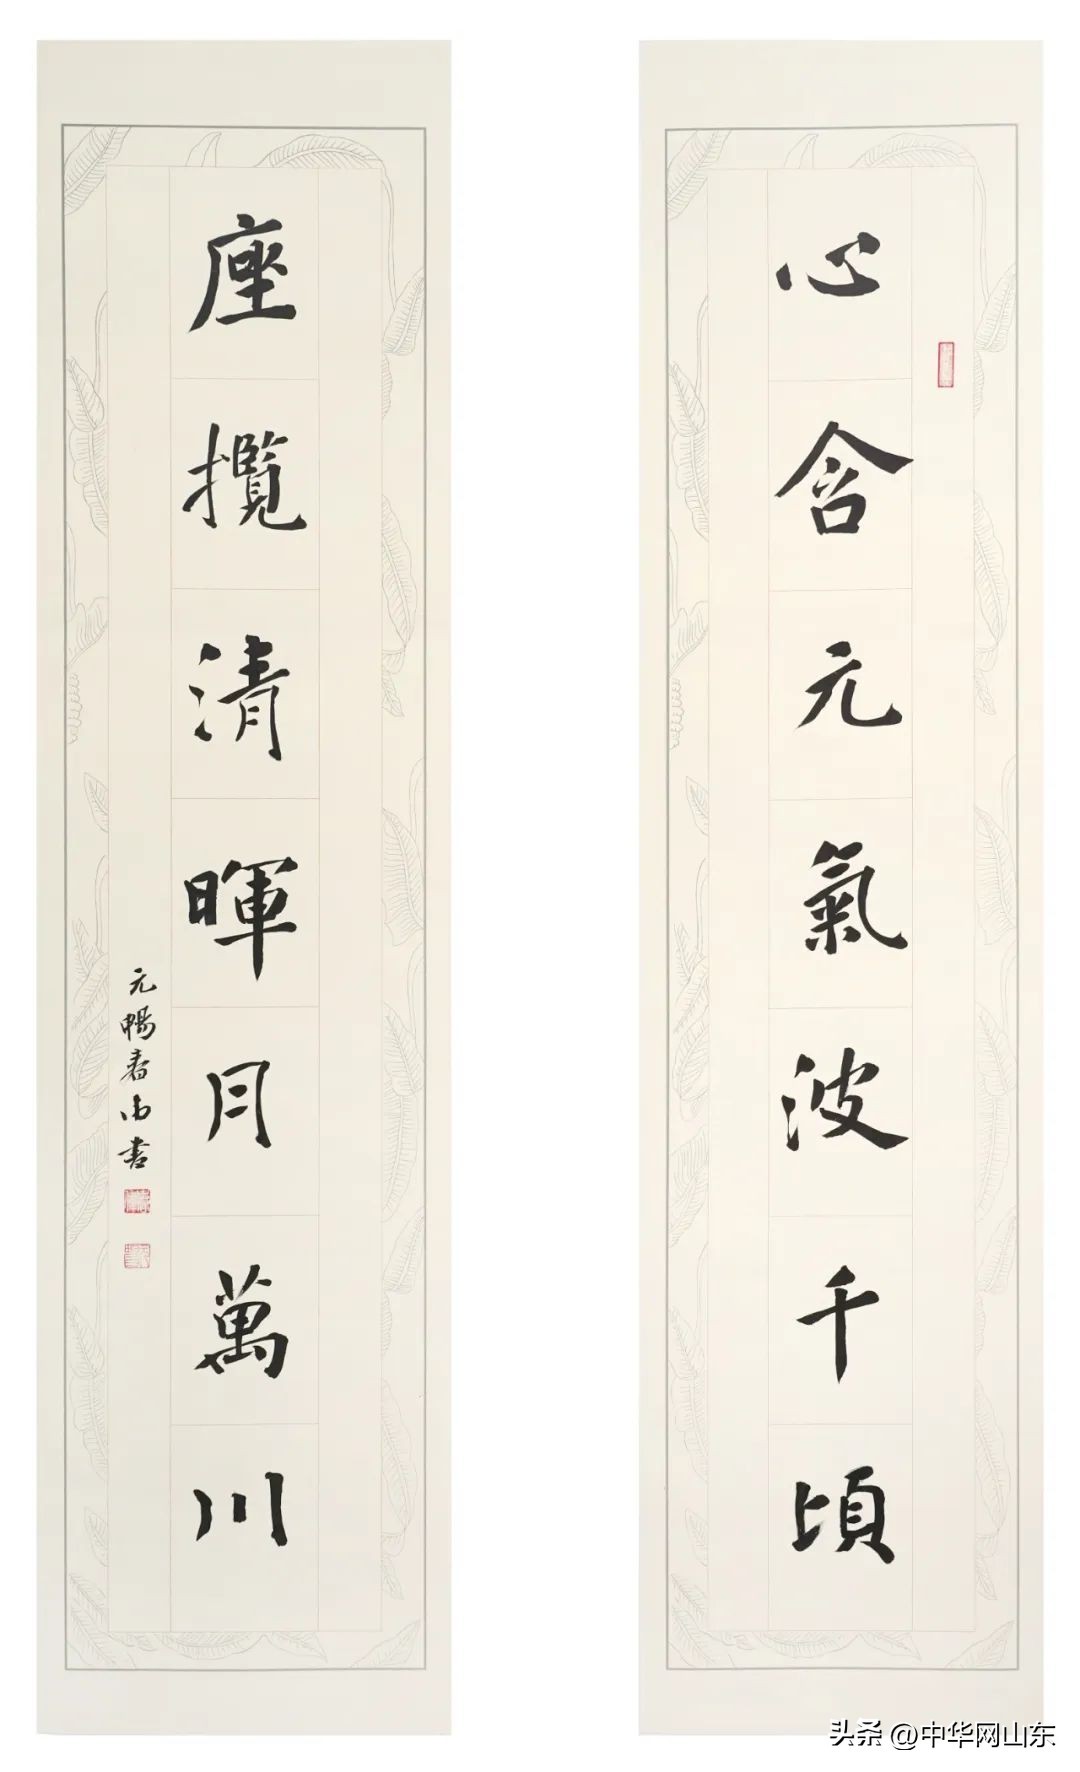 心含元氣波千頃
座攬清暉月萬川
元暢春山書
头条 @中华网山东